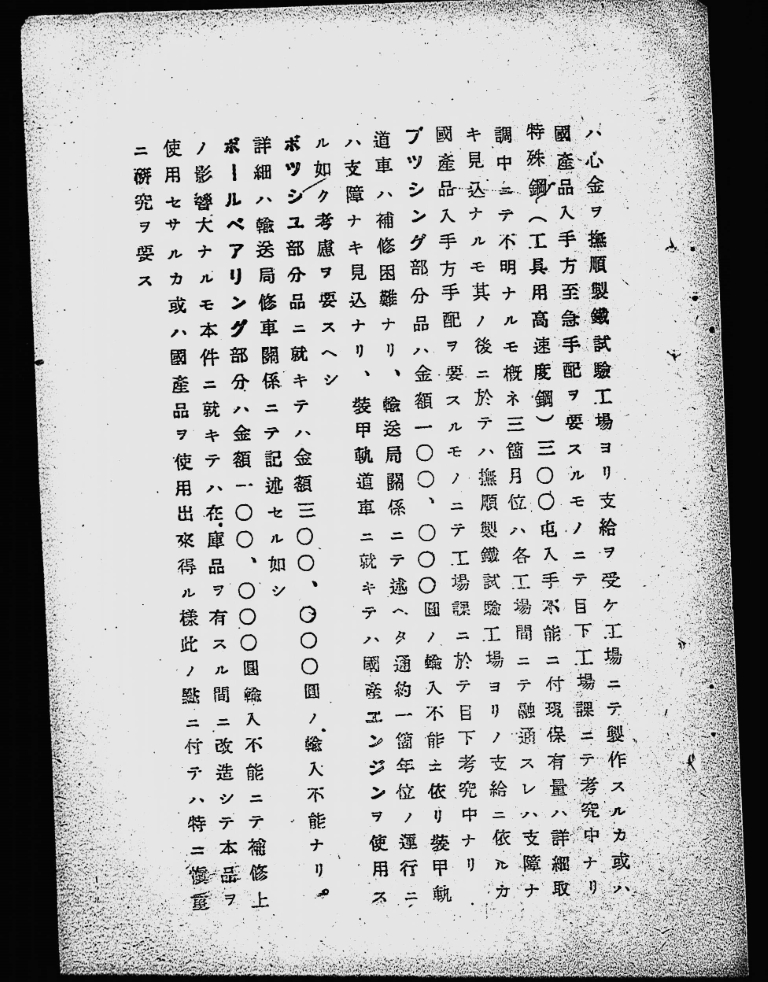 ハ心金ヲ撫順製鐵試驗工場ヨリ支給ヲ受ケ工場ニテ製作スルカ或ハ
國產品入手方至急手配ヲ要スルモノニテ目下工場課ニテ考究中ナリ
特殊鋼（工具用高速度鋼）三〇〇屯入手不能ニ付現保有量ハ詳細取
調中ニテ不明ナルモ概ネ三箇月位ハ各工場間ニテ融通スレハ支障ナ
キ見込ナルモ其ノ後ニ於テハ撫順製鐵試驗工場ヨリノ支給ニ依ルカ
國產品入手方手配ヲ要スルモノニテ工場課ニ於テ目下考究中ナリ
ブツシング部分品ハ金額一〇〇、〇〇〇圓ノ輸入不能ニ依リ裝甲軌
道車ハ補修困難ナリ、輸送局關係ニテ述ヘタ通約一箇年位ノ運行ニ
ハ支障ナキ見込ナリ、裝甲軌道車ニ就キテハ國產エンジンヲ使用ス
ル如ク考慮ヲ要スヘシ
ボツシユ部分品ニ就キテハ金額三〇〇、〇〇〇圓ノ輸入不能ナリ。
詳細ハ輸送局修車關係ニテ記述セル如シ
ボールベアリング部分ハ金額一〇〇、〇〇〇圓輸入不能ニテ補修上
ノ影響大ナルモ本件ニ就キテハ在庫品ヲ有スル間ニ改造シテ本品ヲ
使用セサルカ或ハ國產品ヲ使用出來得ル樣此ノ點ニ付テハ特ニ愼重
ニ硏究ヲ要ス